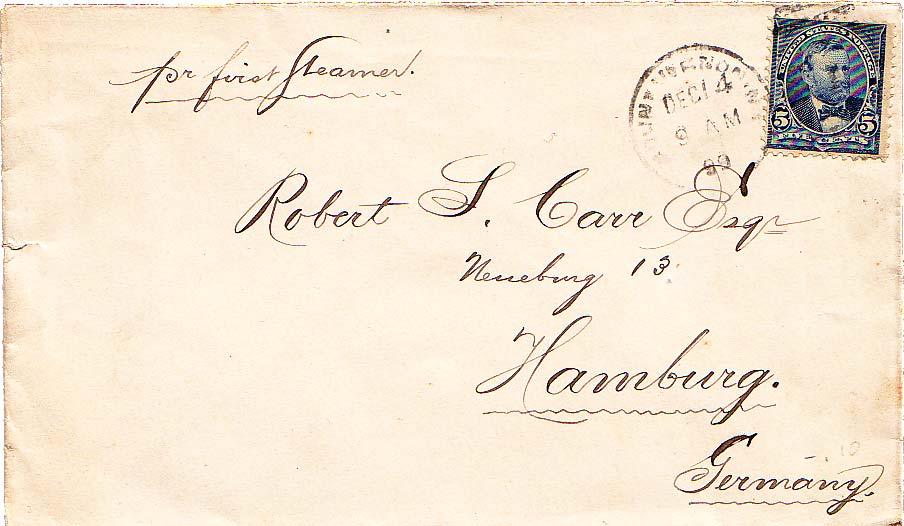 pr first Steamer.
DEC 14
9 AM
99
UNITED STATES POSTAGE
5 5
FIVE CENTS
Robert S. Carr Esqr
Neueburg 13
Hamburg.
Germany.